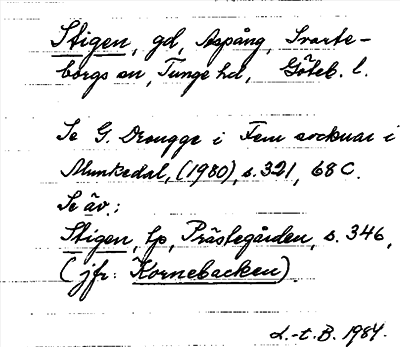 Stigen, gd, Aspång, Svarte-
borgs sn, Tunge hd, Göteb. l.
Se G. Drougge i Fem socknar i
Munkedal, (1980), s. 321, 68 C.
Se äv.:
Stigen, lp, Prästegården, s. 346,
(jfr: Kornebacken).
L.-t. B. 1984.